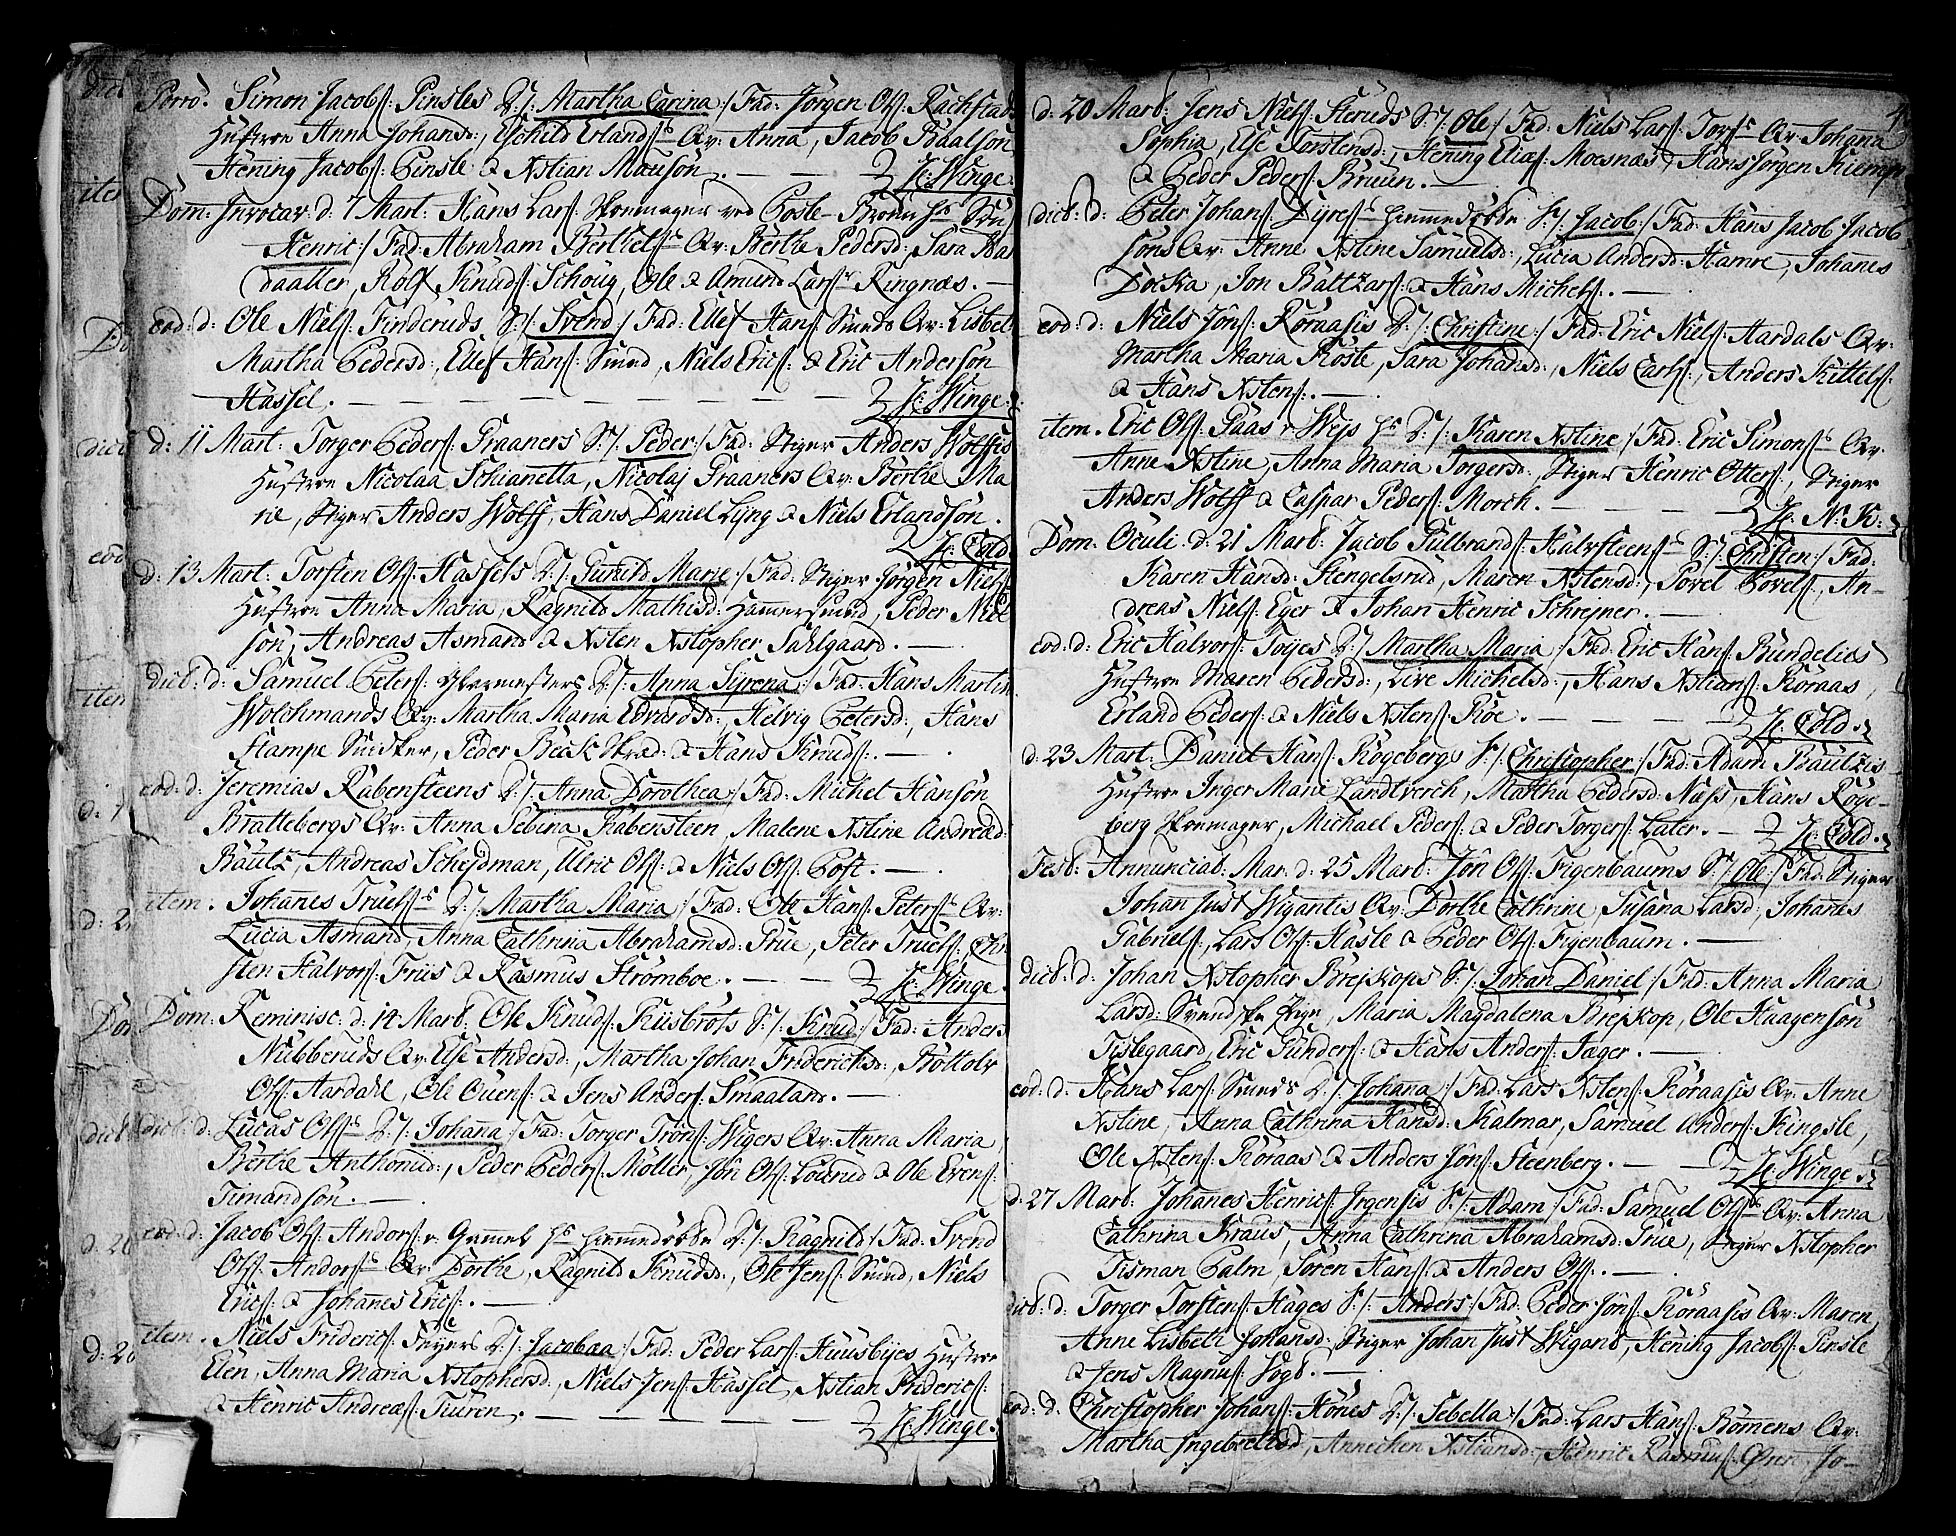 Porro. Simon Jacobs: Pinsles D:/: Martha Carina:/ Fad: Jørgen Ols:
Hustroe Anna Johansd:, Eschild Erlands: Qv: Anna, Jacob Paalsøn
Hening Jacobs: Pinsle & Xstian Mousøn. — H: Winge.
Dom: Invocav: d: 7 Mart: Hans Lars: ved
Henric:/ Fad: Abraham Berthels: Qv: Berthe Pedersd:, Sara
daatter, Rolf Knuds: Schoug, Ole & Amund Lars: Ringnæs. —
eod: d: Ole Niels: Finderuds S:/: Svend:/ Fad: Ellef Hans: Smeds Qv: Lisbeth
Martha Pedersd:, Ellef Hans: Smed, Niels Erics: & Eric Andersøn
Hassel. — H: Winge.
d: 11 Mart: Torger Peders: Praaners S:/: Peder:/ Fad: Stiger Anders Wolffs
Hustroe Nicolaa Schianetta, Nicolaj Praaners Qv: Berthe Ma
rie, Stiger Anders Wolff, Hans Daniel Lyng & Niels Erlandsøn.
H: Cold.
d: 13 Mart: Torsten Ols: Hassels D:/: Gunild Marie:/ Fad: Stiger Jørgen Niels:
Hustroe Anna Maria, Ragnild Mathisd: Hammersmed, Peder Niel
søn, Andreas Asmand & Xsten Xstopher Sahlgaard. —
dict: d: Samuel Peters: D:/: Anna Syrena:/ Fad: Hans Martin
Wolchmands Qv: Martha Maria Edvardsd:, Helvig Petersd:, Hans
Stampe Snidker, Peder Beck & Hans Knuds: —
eod: d: Jeremias Rabensteens D:/: Anna Dorothea:/ Fad: Michel Hansøn
Brattebergs Qv: Anna Sebina Rabensteen, Malene Xstine Andread:
Bautz, Andreas Schejdman, Ulric Ols: & Niels Ols: Post. —
item. Johannes Truels: D:/: Martha Maria:/ Fad: Ole Hans: Peters: Qv:
Lucia Asmand, Anna Cathrina Abrahamsd: Prue, Peter Truels:, Chri
sten Halvors: Friis & Rasmus Strømboe. — H: Winge.
Dom: Reminisc: d: 14 Mart: Ole Knuds: S:/: Knud:/ Fad: Anders
Nubberuds Qv: Else Andersd:, Martha Johan Friderichsd:, Bottolv
Ols: Aardahl, Ole Ouens: & Jens Anders: Smaaland. —
dict: d: Lucas Ols: D:/: Johana:/ Fad: Torger Trøns: Wigers Qv: Anna Maria,
Berthe Anthonid:, Peder Peders: Møller, Jøn Ols: Lourud & Ole Evens:
Timandsøn. —
eod: d: Jacob Ols: Andors: D:/: Ragnild:/ Fad: Svend
Ols: Andors: Qv: Dorthe, Ragnild Knudsd:, Ole Jens: Smed, Niels
Erics: & Johanes Erics: —
item. Niels Frideric: D:/: Jacobaa:/ Fad: Peder Lars: Huusbyes Hustroe
Elen, Anna Maria Xstophersd:, Niels Jens: Hassel, Xstian Frideric:
& Henric Andreæs: Tuuren. — H: Winge.
d: 20 Mart: Jens Niels: Steruds S:/: Ole:/ Fad: Niels Lars: Tors: Qv: Johana
Sophia, Else Torstensd:, Hening Eliæs: Moesnæs & Hans Jørgen Kiemp
& Peder Peders: Bruun. —
dict: d: Peter Johans: Dyres: S:/: Jacob:/ Fad: Hans Jacob Jacob
søns Qv: Anne Xstine Samuelsd:, Lucia Andersd: Hamre, Johanes
Docka, Jon Baltzars: & Hans Michels: —
eod: d: Niels Jøns: Roraasis D:/: Christine:/ Fad: Eric Niels: Aardals Qv:
Martha Maria Koste, Sara Johansd:, Niels Carls:, Anders Kittels:
& Hans Xstens: —
item. Eric Ols: D:/: Karen Xstine:/ Fad: Eric Simons: Qv:
Anne Xstine, Anna Maria Torgersd:, Stiger Henric Otters:, Stiger
Anders Wolff & Caspar Peders: Morch. — H: N: K:
Dom: Oculi d: 21 Mart: Jacob Gulbrands: Halvsteens: S:/: Christen:/ Fad:
Karen Hansd: Stengelsrud, Maren Xstensd:, Povel Povels:, An-
dreas Niels: Eger & Johan Henric Schrejner. —
eod: d: Eric Halvors: D:/: Martha Maria:/ Fad: Eric Hans: Bundelies
Hustroe Maren Pedersd:, Live Michelsd:, Hans Xstians: Roraas,
Erland Peders: & Niels Xstens: Koe. — H: Cold.
d: 23 Mart: Daniel Hans: Rogebergs S:/: Christopher:/ Fad: Adam Bautzes
Hustroe Inger Marie Landtverch, Martha Pedersd: Næss, Hans Roge-
berg, Michael Peders: & Peder Torgers: Later. — H: Cold.
Fest: Annunciat: Mar: d: 25 Mart: Jøn Ols: Figenbaums S:/: Ole:/ Fad: Stiger
Johan Just Wigantis Qv: Dorthe Cathrine, Susana Larsd:, Johanes
Gabriels:, Lars Ols: Hasle & Peder Ols: Figenbaum. —
dict: d: Johan Xstopher Brejskops S:/: Johan Daniel:/ Fad: Anna Maria
Larsd: Pige, Maria Magdalena Brejskop, Ole Haagensøn
Tislegaard, Eric Gunders: & Hans Anders: Jager. —
eod: d: Hans Lars: Smeds D:/: Johana:/ Fad: Lars Xstens: Roraasis Qv: Anne
Xstine, Anna Cathrina Hansd: Kalmar, Samuel Anders: Kingsle,
Ole Xstens: Roraas & Anders Jøns: Steenberg. — H: Winge.
d: 27 Mart: Johanes Henrics: Irgensis S:/: Adam:/ Fad: Samuel Ols: Qv: Anna
Cathrina Kraus, Anna Cathrina Abrahamsd: Prue, Stiger Xstopher
Tisman Palm, Søren Hans: & Anders Ols: —
dict: d: Torger Torstens: Hages S:/: Anders:/ Fad: Peder Jøns: Roraasis Qv: Maren,
Anne Lisbeth Johansd:, Stiger Johan Just Wigand, Hening Jacobs: Pinsle
& Jens Magnus: Fogt. —
eod: d: Christopher Johans: Hønes D:/: Sebella:/ Fad: Lars Hans: Bømens Qv:
Martha Ingebretsd:, Annechen Xstiansd:, Henric Rasmus: Ohren, Jo-